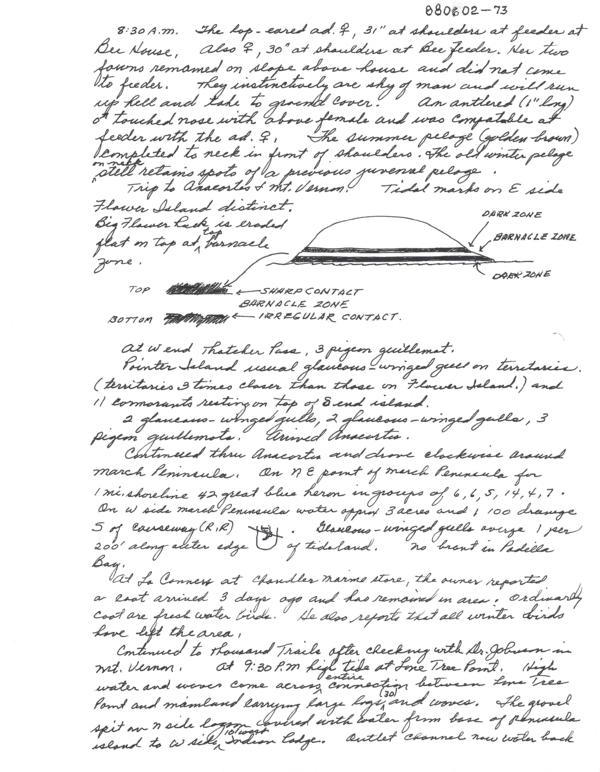 880602-73
8:30 A.M. The lop-eared ad. ♀, 31" at shoulders at feeder at
Bee House. Also ♀, 30" at shoulders at Bee feeder. Her two
fawns remained on slope above house and did not come
to feeder. They instinctively are shy of man and will run
up hill and take to ground cover. An antlered (1" long)
♂ touched nose with above female and was compatable at
feeder with the ad. ♀. The summer pelage (golden-brown)
completed to neck in front of shoulders. The old winter pelage
on neck
still retains spots of a previous juvenal pelage.
Trip to Anacortes & Mt. Vernon. Tidal marks on E side
Flower Island distinct.
Big Flower Rock is eroded
flat on top at top barnacle
zone.
DARK ZONE
BARNACLE ZONE
DARK ZONE
TOP ← SHARP CONTACT
BARNACLE ZONE
BOTTOM ← IRREGULAR CONTACT.
At W end Thatcher Pass, 3 pigeon guillemot.
Pointer Island usual glaucous-winged gull on territories.
(territories 3 times closer than those on Flower Island.) and
11 cormorants resting on top of S end island.
2 glaucous-winged gulls, 2 glaucous-winged gulls, 3
pigeon guillemots. Arrived Anacortes.
Continued thru Anacortes and drove clockwise around
March Peninsula. On NE point of March Peninsula for
1 mi. shoreline 42 great blue heron in groups of 6, 6, 5, 14, 4, 7.
On W side March Peninsula water approx 3 acres and 1 100 drainage
S of causeway (R.R) Glaucous-winged gulls average 1 per
200' along outer edge of tideland. No brant in Padilla
Bay.
At La Conner at Chandler Marine store, the owner reported
a coot arrived 3 days ago and has remained in area. Ordinarily
coot are fresh water birds. He also reports that all winter birds
have left the area.
Continued to Thousand Trails after checking with Dr. Johnson in
Mt. Vernon. At 9:30 P.M high tide at Lone Tree Point. High
water and waves come across entire connection between Lone Tree
Point and mainland carrying large logs (30) and waves. The gravel
spit on N side lagoon covered with water from base of peninsula
island to W side Indian Lodge. Outlet channel now water back